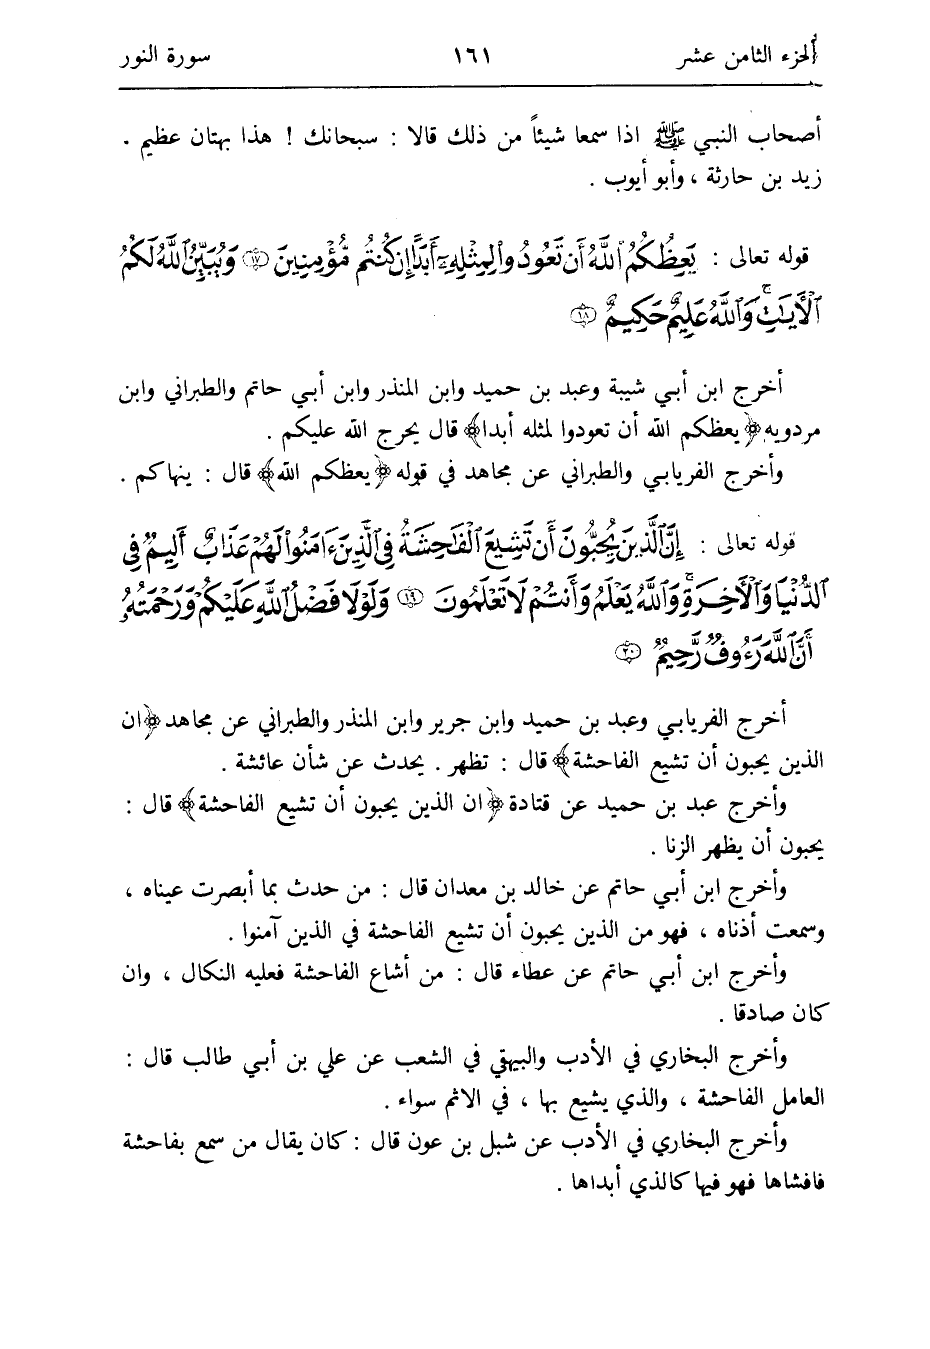 الجزء الثامن عشر ١٦١ سورة النور
أصحاب النبي ﷺ اذا سمعا شيئاً من ذلك قالا : سبحانك ! هذا بهتان عظيم .
زيد بن حارثة ، وأبو أيوب .
قوله تعالى : يَعِظُكُمُ ٱللَّهُ أَن تَعُودُوا۟ لِمِثْلِهِۦٓ أَبَدًا إِن كُنتُم مُّؤْمِنِينَ ١٧ وَيُبَيِّنُ ٱللَّهُ لَكُمُ
ٱلْأَيَٰتِ ۚ وَٱللَّهُ عَلِيمٌ حَكِيمٌ ١٨
أخرج ابن أبي شيبة وعبد بن حميد وابن المنذر وابن أبي حاتم والطبراني وابن
مردويه ﴿يعظكم الله أن تعودوا لمثله أبدا﴾ قال يحرج الله عليكم .
وأخرج الفريابي والطبراني عن مجاهد في قوله ﴿يعظكم الله﴾ قال : ينهاكم .
قوله تعالى : إِنَّ ٱلَّذِينَ يُحِبُّونَ أَن تَشِيعَ ٱلْفَٰحِشَةُ فِى ٱلَّذِينَ ءَامَنُوا۟ لَهُمْ عَذَابٌ أَلِيمٌ فِى
ٱلدُّنْيَا وَٱلْأَخِرَةِ ۚ وَٱللَّهُ يَعْلَمُ وَأَنتُمْ لَا تَعْلَمُونَ ١٩ وَلَوْلَا فَضْلُ ٱللَّهِ عَلَيْكُمْ وَرَحْمَتُهُۥ
وَأَنَّ ٱللَّهَ رَءُوفٌ رَّحِيمٌ ٢٠
أخرج الفريابي وعبد بن حميد وابن جرير وابن المنذر والطبراني عن مجاهد ﴿ان
الذين يحبون أن تشيع الفاحشة﴾ قال : تظهر . يحدث عن شأن عائشة .
وأخرج عبد بن حميد عن قتادة ﴿ان الذين يحبون أن تشيع الفاحشة﴾ قال :
يحبون أن يظهر الزنا .
وأخرج ابن أبي حاتم عن خالد بن معدان قال : من حدث بما أبصرت عيناه ،
وسمعت أذناه ، فهو من الذين يحبون أن تشيع الفاحشة في الذين آمنوا .
وأخرج ابن أبي حاتم عن عطاء قال : من أشاع الفاحشة فعليه النكال ، وان
كان صادقا .
وأخرج البخاري في الأدب والبيهقي في الشعب عن علي بن أبي طالب قال :
العامل الفاحشة ، والذي يشيع بها ، في الاثم سواء .
وأخرج البخاري في الأدب عن شبل بن عون قال : كان يقال من سمع بفاحشة
فافشاها فهو فيها كالذي أبداها .